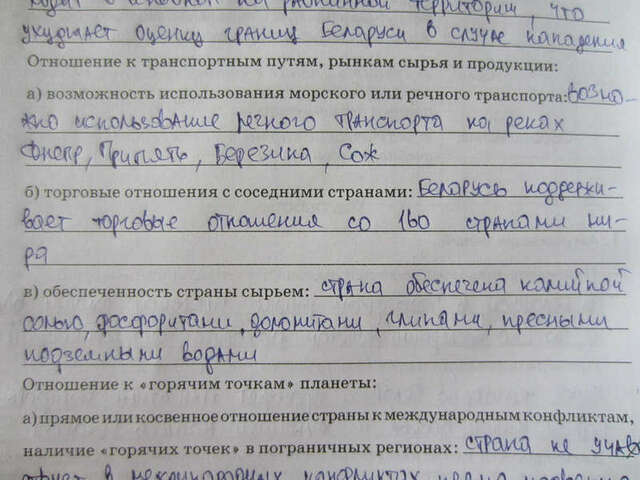 ходит в основном по равнинной территории, что
ухудшает оценку границ Беларуси в случае нападения
Отношение к транспортным путям, рынкам сырья и продукции:
а) возможность использования морского или речного транспорта: возмо-
жно использование речного транспорта на реках
Днепр, Припять, Березина, Сож
б) торговые отношения с соседними странами: Беларусь поддержи-
вает торговые отношения со 160 странами ми-
ра
в) обеспеченность страны сырьем: страна обеспечена калийной
солью, фосфоритами, доломитами, глинами, пресными
подземными водами
Отношение к «горячим точкам» планеты:
а) прямое или косвенное отношение страны к международным конфликтам,
наличие «горячих точек» в пограничных регионах: страна не участ
вует в международных конфликтах